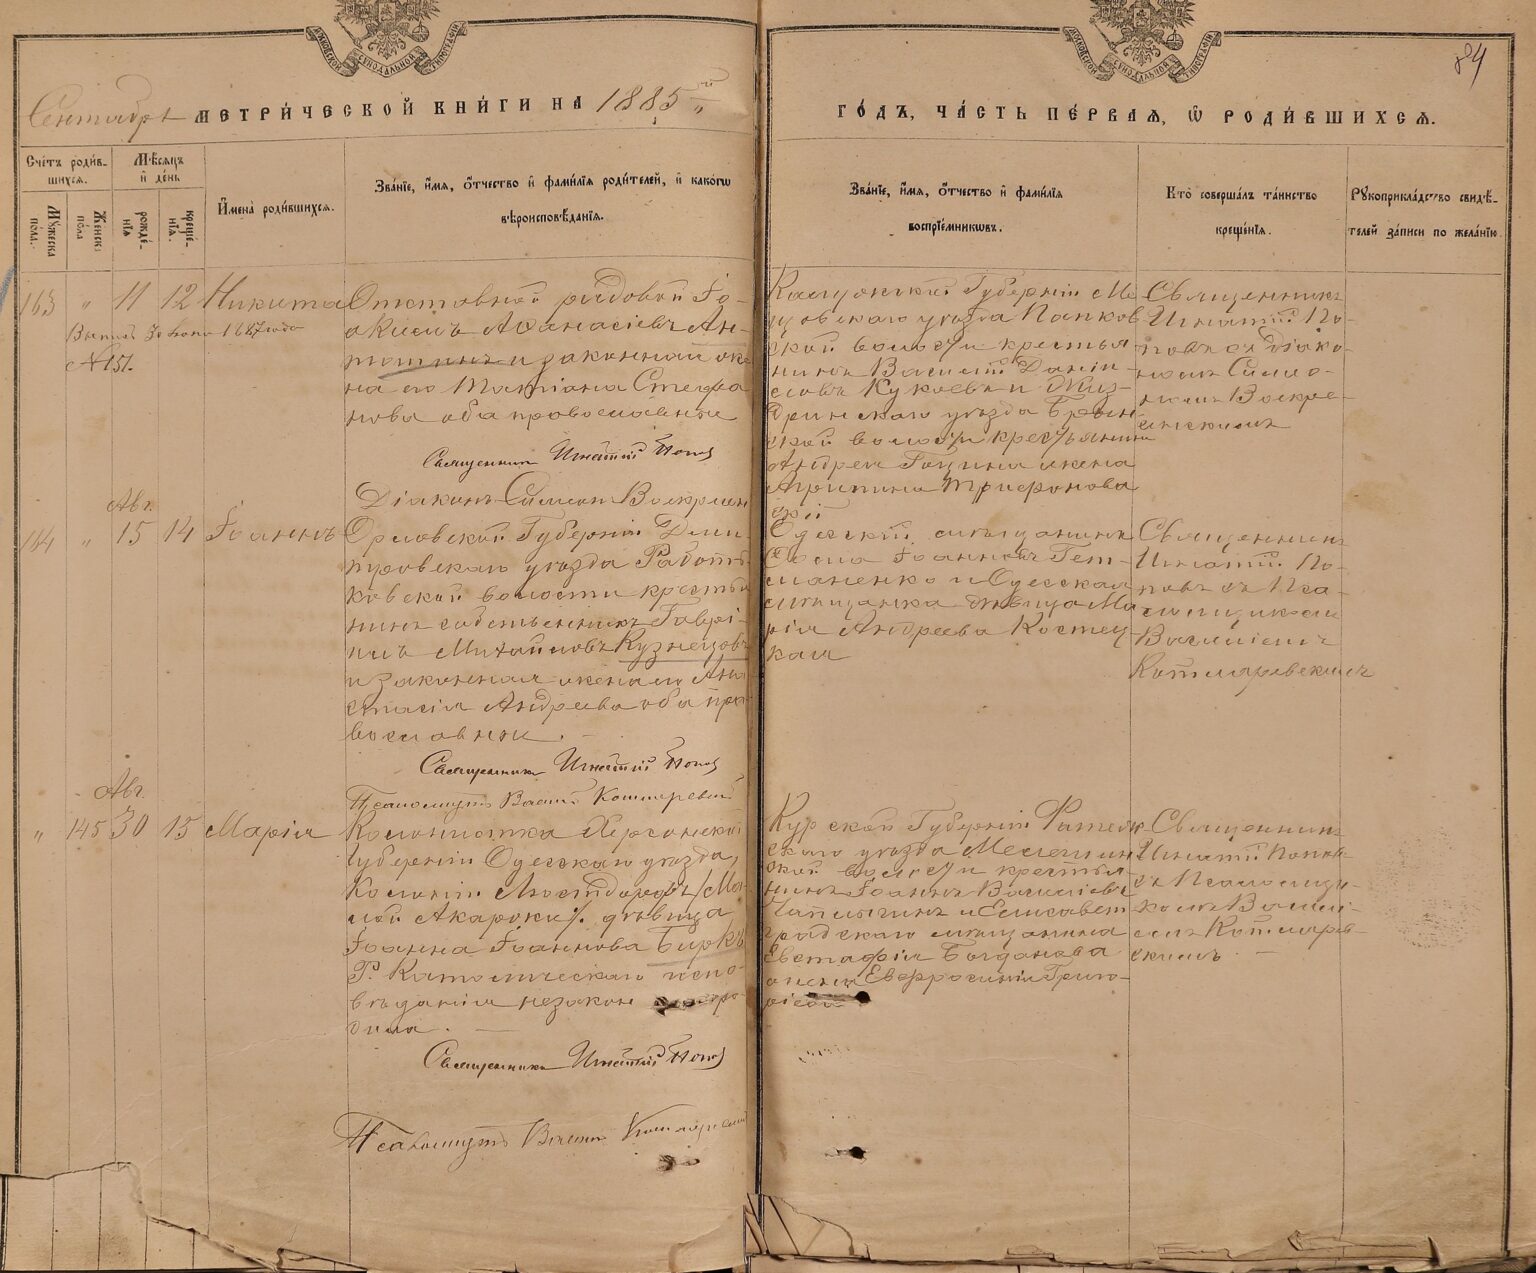 84
Сентябрь МЕТРИ́ЧЕСКОЙ КНИ́ГИ НА 1885й
ГО́ДЪ, ЧА́СТЬ ПЕ́РВАЯ, Ѽ РОДИ́ВШИХСЯ.
Сче́тъ роди́в-
шихся.
Мꙋ́жеска по́ла.
Же́нск: по́ла
Мѣ́сяцъ
и҆ де́нь
рожде́-
нїя
креще́-
нїя.
И҆мена̀ роди́вшихся.
Зва́нїе, и҆́мя, ѻ҆́тчество и҆ фами́лїя роди́телей, и҆ како́гѡ
вѣроисповѣ́данїя.
Зва́нїе, и҆́мя, ѻ҆́тчество и҆ фами́лїя
воспрїе́мникѡвъ.
Кто̀ соверша́лъ та́инство
креще́нїя.
Рꙋкоприкла́дство свидѣ́-
телей за́писи по жела́нїю.
163 " 11 12 Никита
1887 года
№ 151.
Отставной рядовой Іо-
акимъ Аѳанасіевъ Ан-
тошинъ и законная же-
на его Татіана Стефа
нова оба православные
Священникъ Игнатій Поповъ
Діаконъ Симеон Воскресен
Калужской Губерніи Ме
щовскаго уѣзда Панков
ской волости крестья
нинъ Василій Даніи-
ловъ Кукоевъ и Жиз-
дринскаго уѣзда Брын
ской волости крестьянина
Андрея жена
Агрипина Трифонова
Священникъ
Игнатій По-
повъ съ Діако-
номъ Симео-
номъ Воскре-
сенскимъ
Авг.
164 " 15 14 Іоаннъ
Орловской Губерніи Дми
тровскаго уѣзда Работь
ковской волости крестья
нинъ собственникъ Гаврі-
илъ Михайловъ Кузнецовъ
и законная жена его Ана
стасія Андреева оба пра
вославные.
Священникъ Игнатій Поповъ
Псаломщикъ Василій Котляревскій
Одесскій мѣщанинъ
Ѳома Іоанновъ Гет-
маненко и Одесская
мѣщанка дѣвица Ма
рія Андреева Костец-
кая
Священникъ
Игнатій По-
повъ съ Пса-
ломщикомъ
Василіемъ
Котляревскимъ
Авг.
" 145 30 15 Марія
Колонистка Херсонской
Губерніи Одесскаго уѣзда,
Колоніи Люстдорфъ /Ма-
лой Акаржи/. дѣвица
Іоанна Іоаннова Биркъ
Р. Католическаго испо-
вѣданія незакон
дила.
Священникъ Игнатій Поповъ
Псаломщикъ Василій Котляревскій
Курской Губерніи Фатеж
скаго уѣзда
ской волости крестья
нинъ Іоаннъ Василіевъ
Чаплыгинъ и Елисавет
градскаго мѣщанина
Евстафія Богданова
жена Евфросинія Григо-
ріева
Священникъ
Игнатій Поповъ
съ Псаломщи-
комъ Васил-
емъ Котлярев-
скимъ.